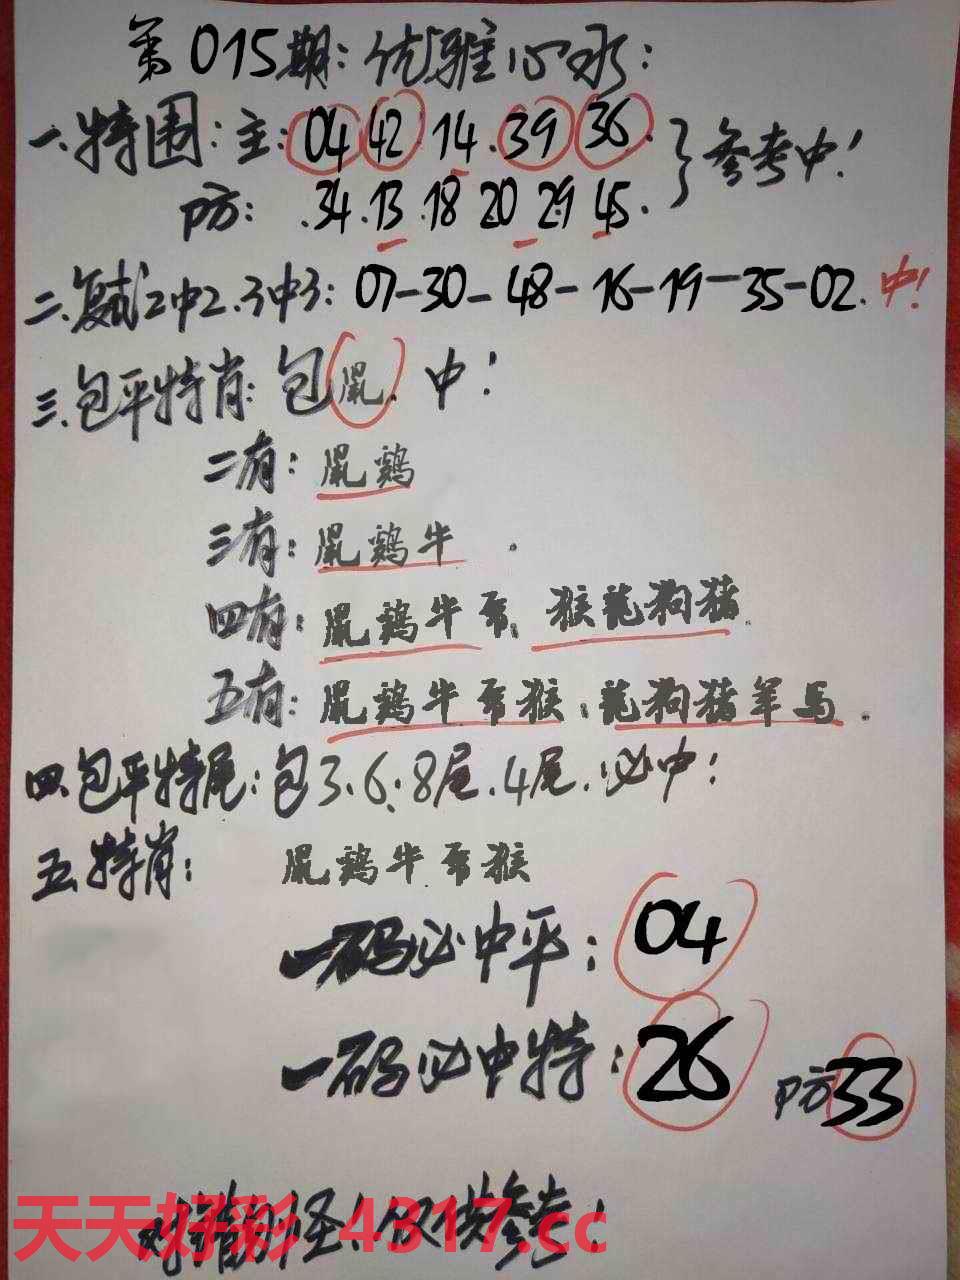 第015期：优雅心水：
一.特围：主：04 42 14.39 36.
防：.34.13.18 20 29 45.
}参考中！
二.复试2中2.3中3：07-30-48-16-19-35-02.中！
三.包平特肖：包鼠.中！
二有：鼠鸡
三有：鼠鸡牛.
四有：鼠鸡牛马.猴龙狗猪.
五有：鼠鸡牛 猴：龙狗猪羊马.
四.包平特尾：包3.6.8尾.4尾.必中！
五.特肖：鼠鸡牛 猴
一码必中平：04
一码必中特：26 防33
对错勿怪！仅供参考！
天天好彩 4317.cc